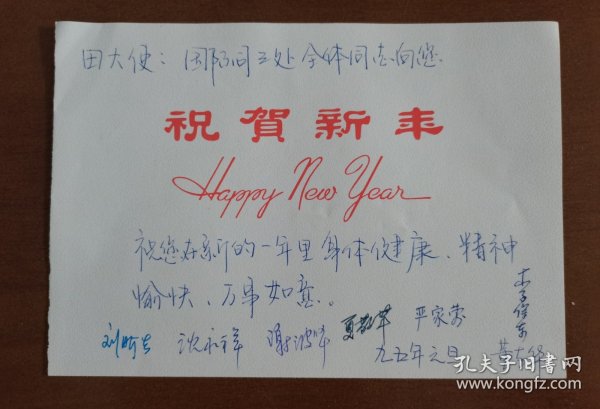 田大使：国际司三处全体同志向您
祝賀新年
Happy New Year
祝您在新的一年里身体健康、精神
愉快、万事如意。
沈永祥 严家蓉
九五年元旦
孔夫子旧书网
www.kongfz.com